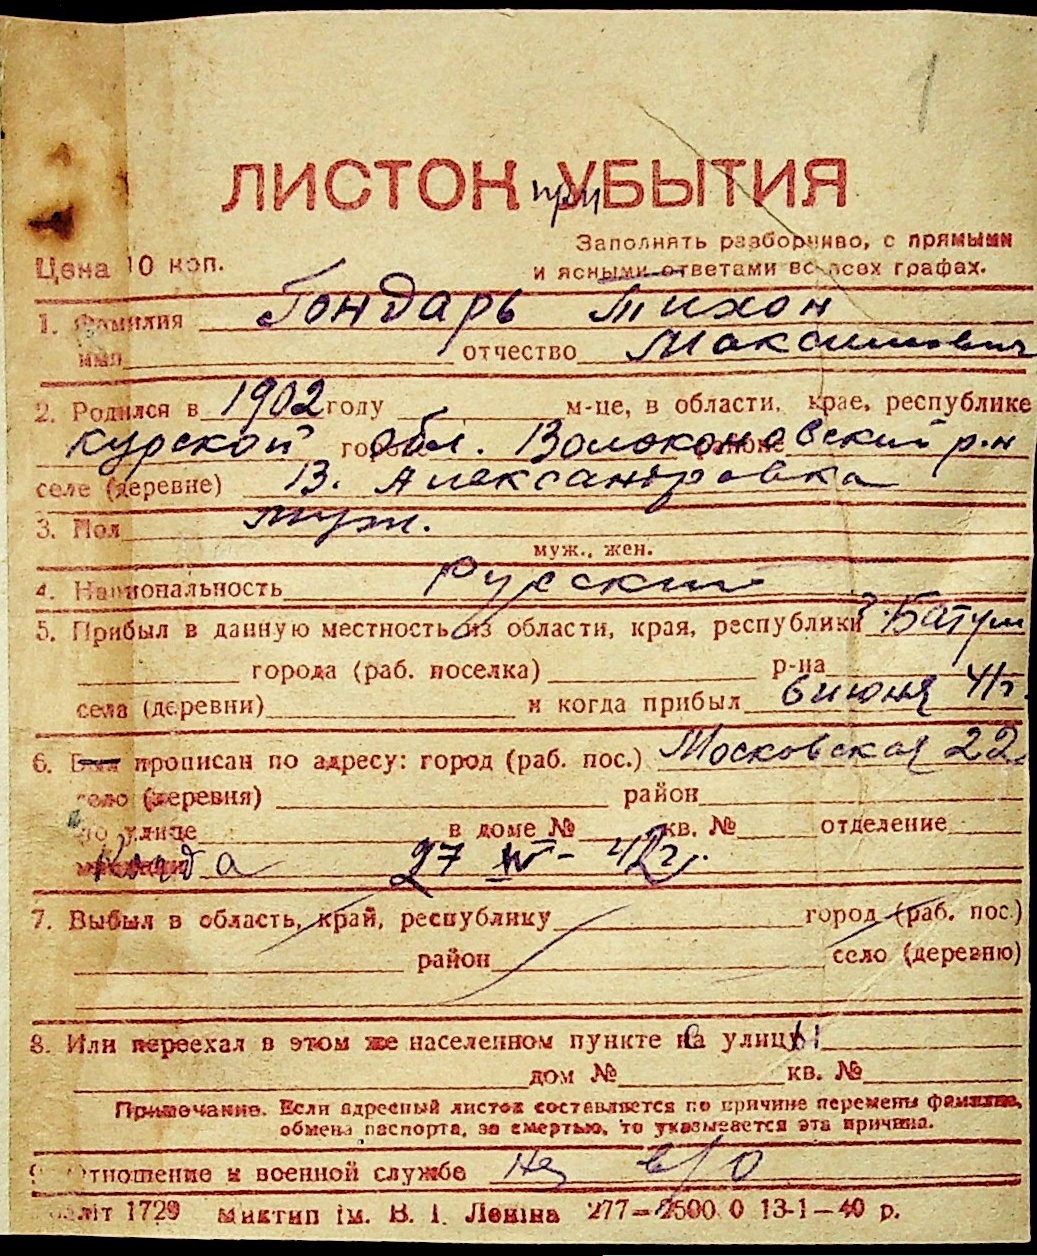 1
ЛИСТОК при УБЫТИЯ
Заполнять разборчиво, с прямыми
Цена 10 коп. и ясными ответами во всех графах.
1. Фамилия Гондарь Тихон
имя отчество Максимович
2. Родился в 1902 году м-це, в области, крае, республике
Курской городе обл. Волоконовский районе р-н
селе (деревне) В. Александровка
3. Пол муж.
муж., жен.
4. Национальность Русский
5. Прибыл в данную местность из области, края, республики г. Батум
города (раб. поселка) р-на
села (деревни) и когда прибыл 6 июня 41г.
6. Был прописан по адресу: город (раб. пос.) Московская 22
село (деревня) район
по улице в доме № кв. № отделение
27 IV - 42г.
7. Выбыл в область, край, республику город (раб. пос.)
район село (деревню)
8. Или переехал в этом же населенном пункте на улицы
дом № кв. №
Примечание. Если адресный листок составляется по причине перемены фамилии,
обмена паспорта, за смертью, то указывается эта причина.
9. Отношение к военной службе в/о
літ 1729 Миктип ім. В. І. Леніна 277—2500 0 13-1—40 р.